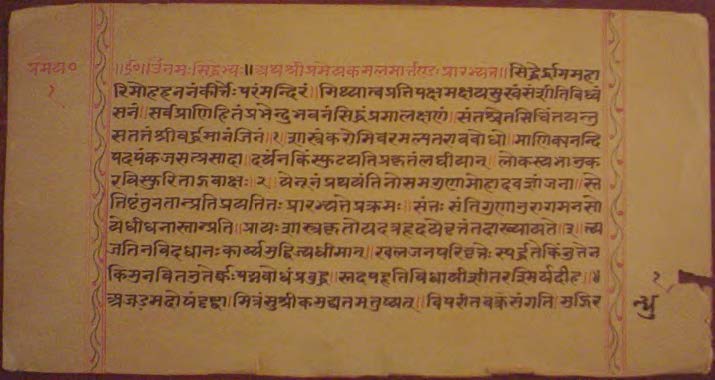 प्रमेय॰
१
॥ई॰॥ उँनमः सिद्धेभ्यः॥ अथ श्रीप्रमेयकमलमार्त्तण्डः प्रारभ्यते॥ सिद्धेर्द्धाममहा
रिमोहहननं कीर्त्तेः परं मन्दिरं॥ मिथ्यात्वप्रतिपक्षमक्षयसुखं संशीतिविध्वं
सनं॥ सर्वप्राणिहितं प्रभेन्दुभवनं सिद्धं प्रमालक्षणं॥ संतश्चेतसि चिंतयन्तु
सततं श्रीवर्द्धमानं जिनं॥१॥ शास्त्रं करोमि वरमल्पतरावबोधो॥ माणिक्यनन्दि
पदपंकजसत्प्रसादा॥ दर्थं न किं स्फुटयति प्रकृतं लघीयान्॥ लोकस्य भानुक
रविस्फुरिताद्गवाक्षः॥२॥ ये नूनं प्रथयंति नोसमगुणा मोहादवज्ञां जनाः॥ स्ते
तिष्टंतु न तान्प्रति प्रयतितः प्रारभ्यते प्रक्रमः॥ संतः संति गुणानुरागमनसो
ये धीधनास्तान्प्रति॥ प्रायः शास्त्रकृतो यदत्र हृदये वृत्तं तदाख्यायते॥३॥ त्य
जति न विदधानः कार्य्यमुद्विज्य धीमान्॥ खलजनपरिवृत्तेः स्पर्द्धते किंतु तेन॥
किमु न वितनुतेर्क्कः पद्मबोधं प्रबुद्ध॥ स्तदपहृतिविधायी शीतरश्मिर्यदीह॥४॥
अजडमदोषं दृष्ट्वा॥ मित्रं सुश्रीकमुद्यतमतुष्यत्॥ विपरीतबंधुसंगति॥ मुद्गिर
१